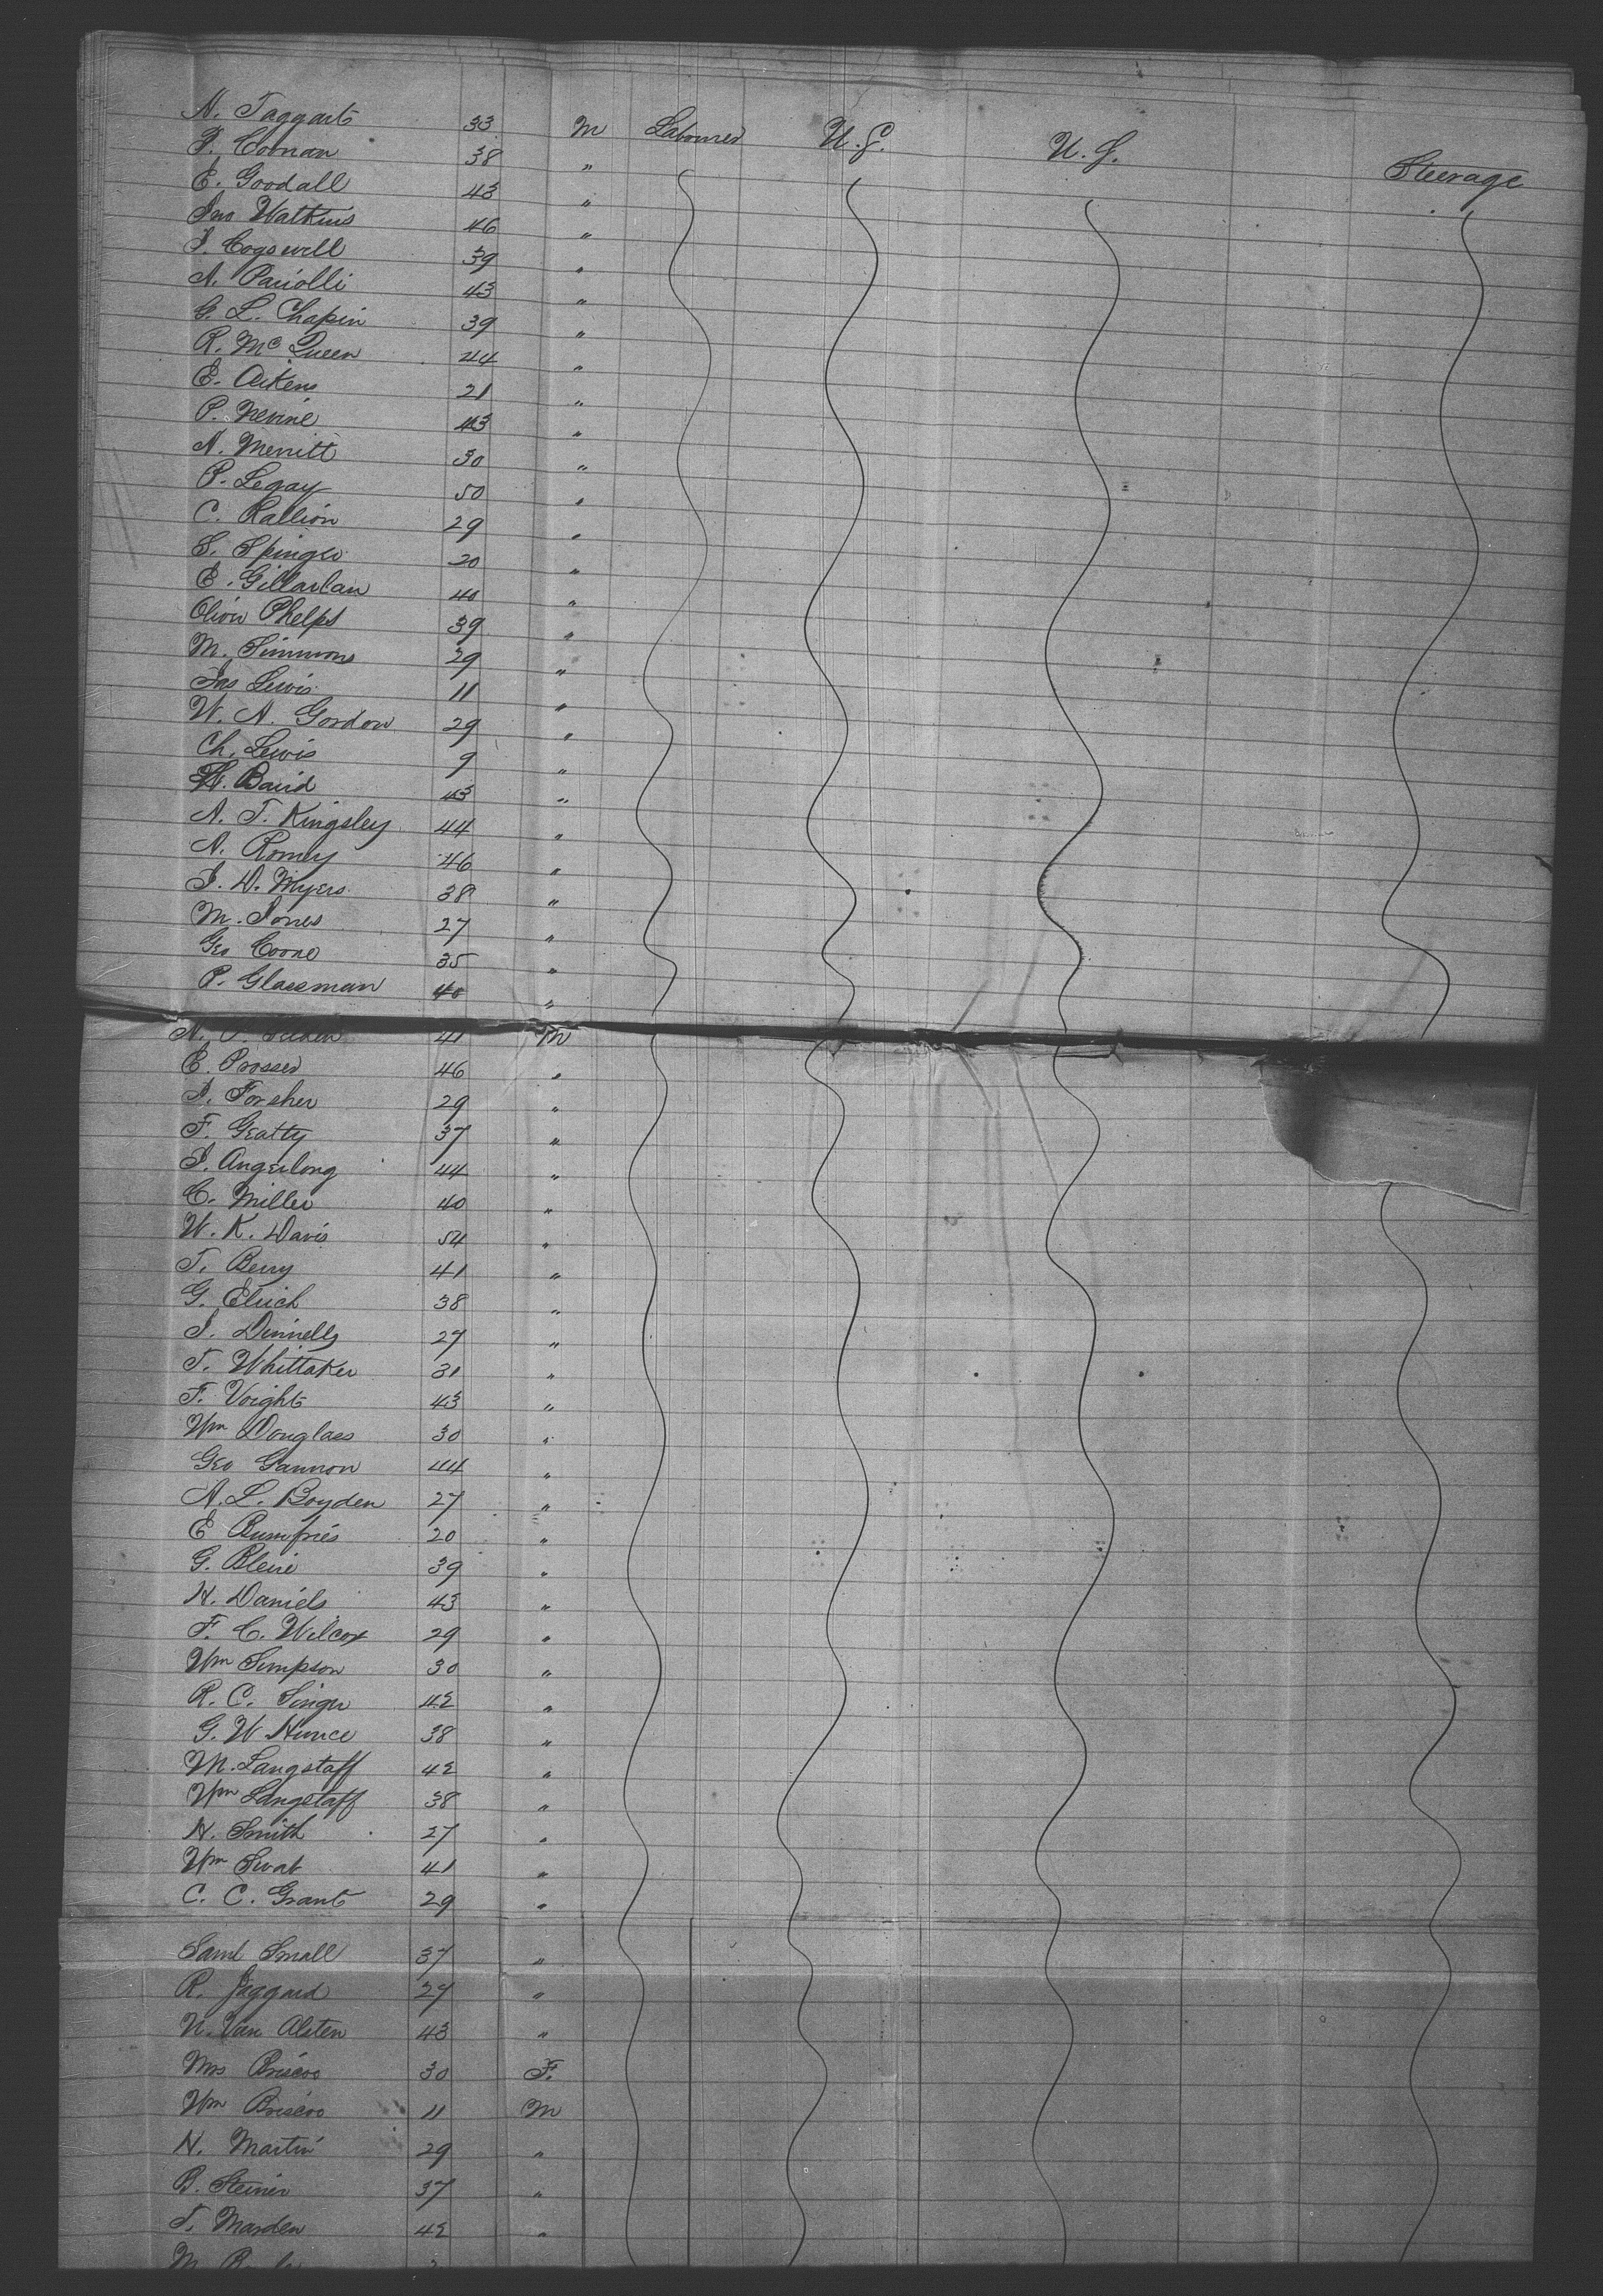 N. Taggart 33 M Labourer U.S. U.S. Steerage
P. Coonan 38 "
E. Goodall 43 "
Jno Watkins 46 "
J. Cogswell 39 "
N. Pariolli 43 "
G. L. Chapin 39 "
R. McQueen 44 "
E. Aikens 21 "
P. Nevine 43 "
N. Merritt 30 "
P. Legay 50 "
C. Rallion 29 "
S. Springer 20 "
E. Gillarlan 40 "
Oliver Phelps 39 "
M. Simmons 29 "
Jas Lewis 11 "
W. N. Gordon 29 "
Ch. Lewis 9 "
H. Baird 43 "
N. T. Kingsley 44 "
N. Romy 46 "
J. D. Myers 38 "
M. Jones 27 "
Geo Coone 35 "
P. Glassman 40 "
N. P. 41 M
E. Prosser 46 "
J. Forsher 29 "
F. Geatty 37 "
J. Angerlong 44 "
C. Miller 40 "
W. K. Davis 54 "
T. Berry 41 "
G. Elrich 38 "
J. Dinnelly 27 "
T. Whittaker 31 "
F. Voight 43 "
Wm Douglass 30 "
Geo Gannon 44 "
N. L. Boyden 27 "
E Bumfries 20 "
G. Bleire 39 "
H. Daniels 43 "
F. C. Wilcox 29 "
Wm Simpson 30 "
R. C. Singer 42 "
G. W Hunce 38 "
M. Langstaff 42 "
Wm Langstaff 38 "
H. Smith 27 "
Wm Swat 41 "
C. C. Grant 29 "
Saml Small 37 "
R. Jaggard 27 "
N. Van Alsten 43 "
Mrs Briscoe 30 F.
Wm Briscoe 11 M
N. Martin 29 "
B. Steiner 37 "
T. Marden 42 "
M.